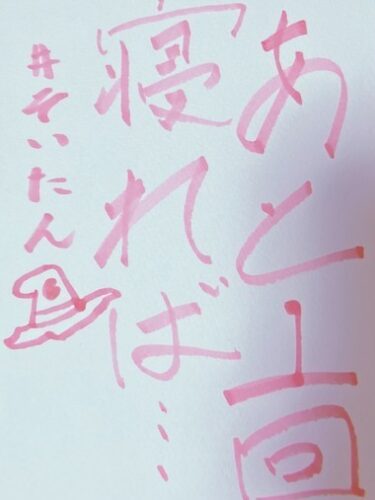 あと1回
寝れば…
#そいたん